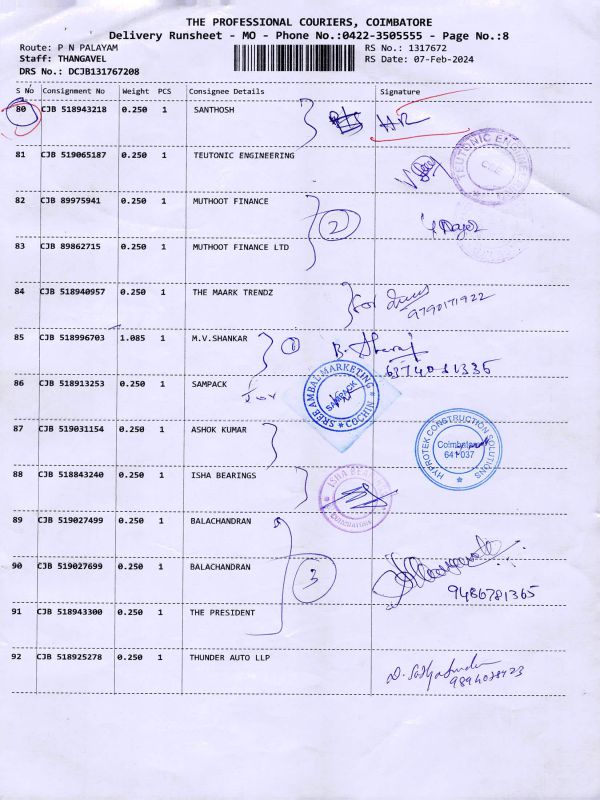 THE PROFESSIONAL COURIERS, COIMBATORE
Delivery Runsheet - MO - Phone No.:0422-3505555 - Page No.:8
Route: P N PALAYAM RS No.: 1317672
Staff: THANGAVEL RS Date: 07-Feb-2024
DRS No.: DCJB131767208
S No Consignment No Weight PCS Consignee Details Signature
80 CJB 518943218 0.250 1 SANTHOSH
81 CJB 519065187 0.250 1 TEUTONIC ENGINEERING
TEUTONIC
82 CJB 89975941 0.250 1 MUTHOOT FINANCE
2
83 CJB 89862715 0.250 1 MUTHOOT FINANCE LTD
84 CJB 518940957 0.250 1 THE MAARK TRENDZ
For
9790171922
85 CJB 518996703 1.085 1 M.V.SHANKAR
B.
86 CJB 518913253 0.250 1 SAMPACK
SREE AMBAL MARKETING
SAMPACK
87 CJB 519031154 0.250 1 ASHOK KUMAR
HYPROTEK CONSTRUCTION SOLUTIONS
Coimbatore
641 037
88 CJB 518843240 0.250 1 ISHA BEARINGS
ISHA
COIMBATORE
89 CJB 519027499 0.250 1 BALACHANDRAN
90 CJB 519027699 0.250 1 BALACHANDRAN
3
9486781365
91 CJB 518943300 0.250 1 THE PRESIDENT
92 CJB 518925278 0.250 1 THUNDER AUTO LLP